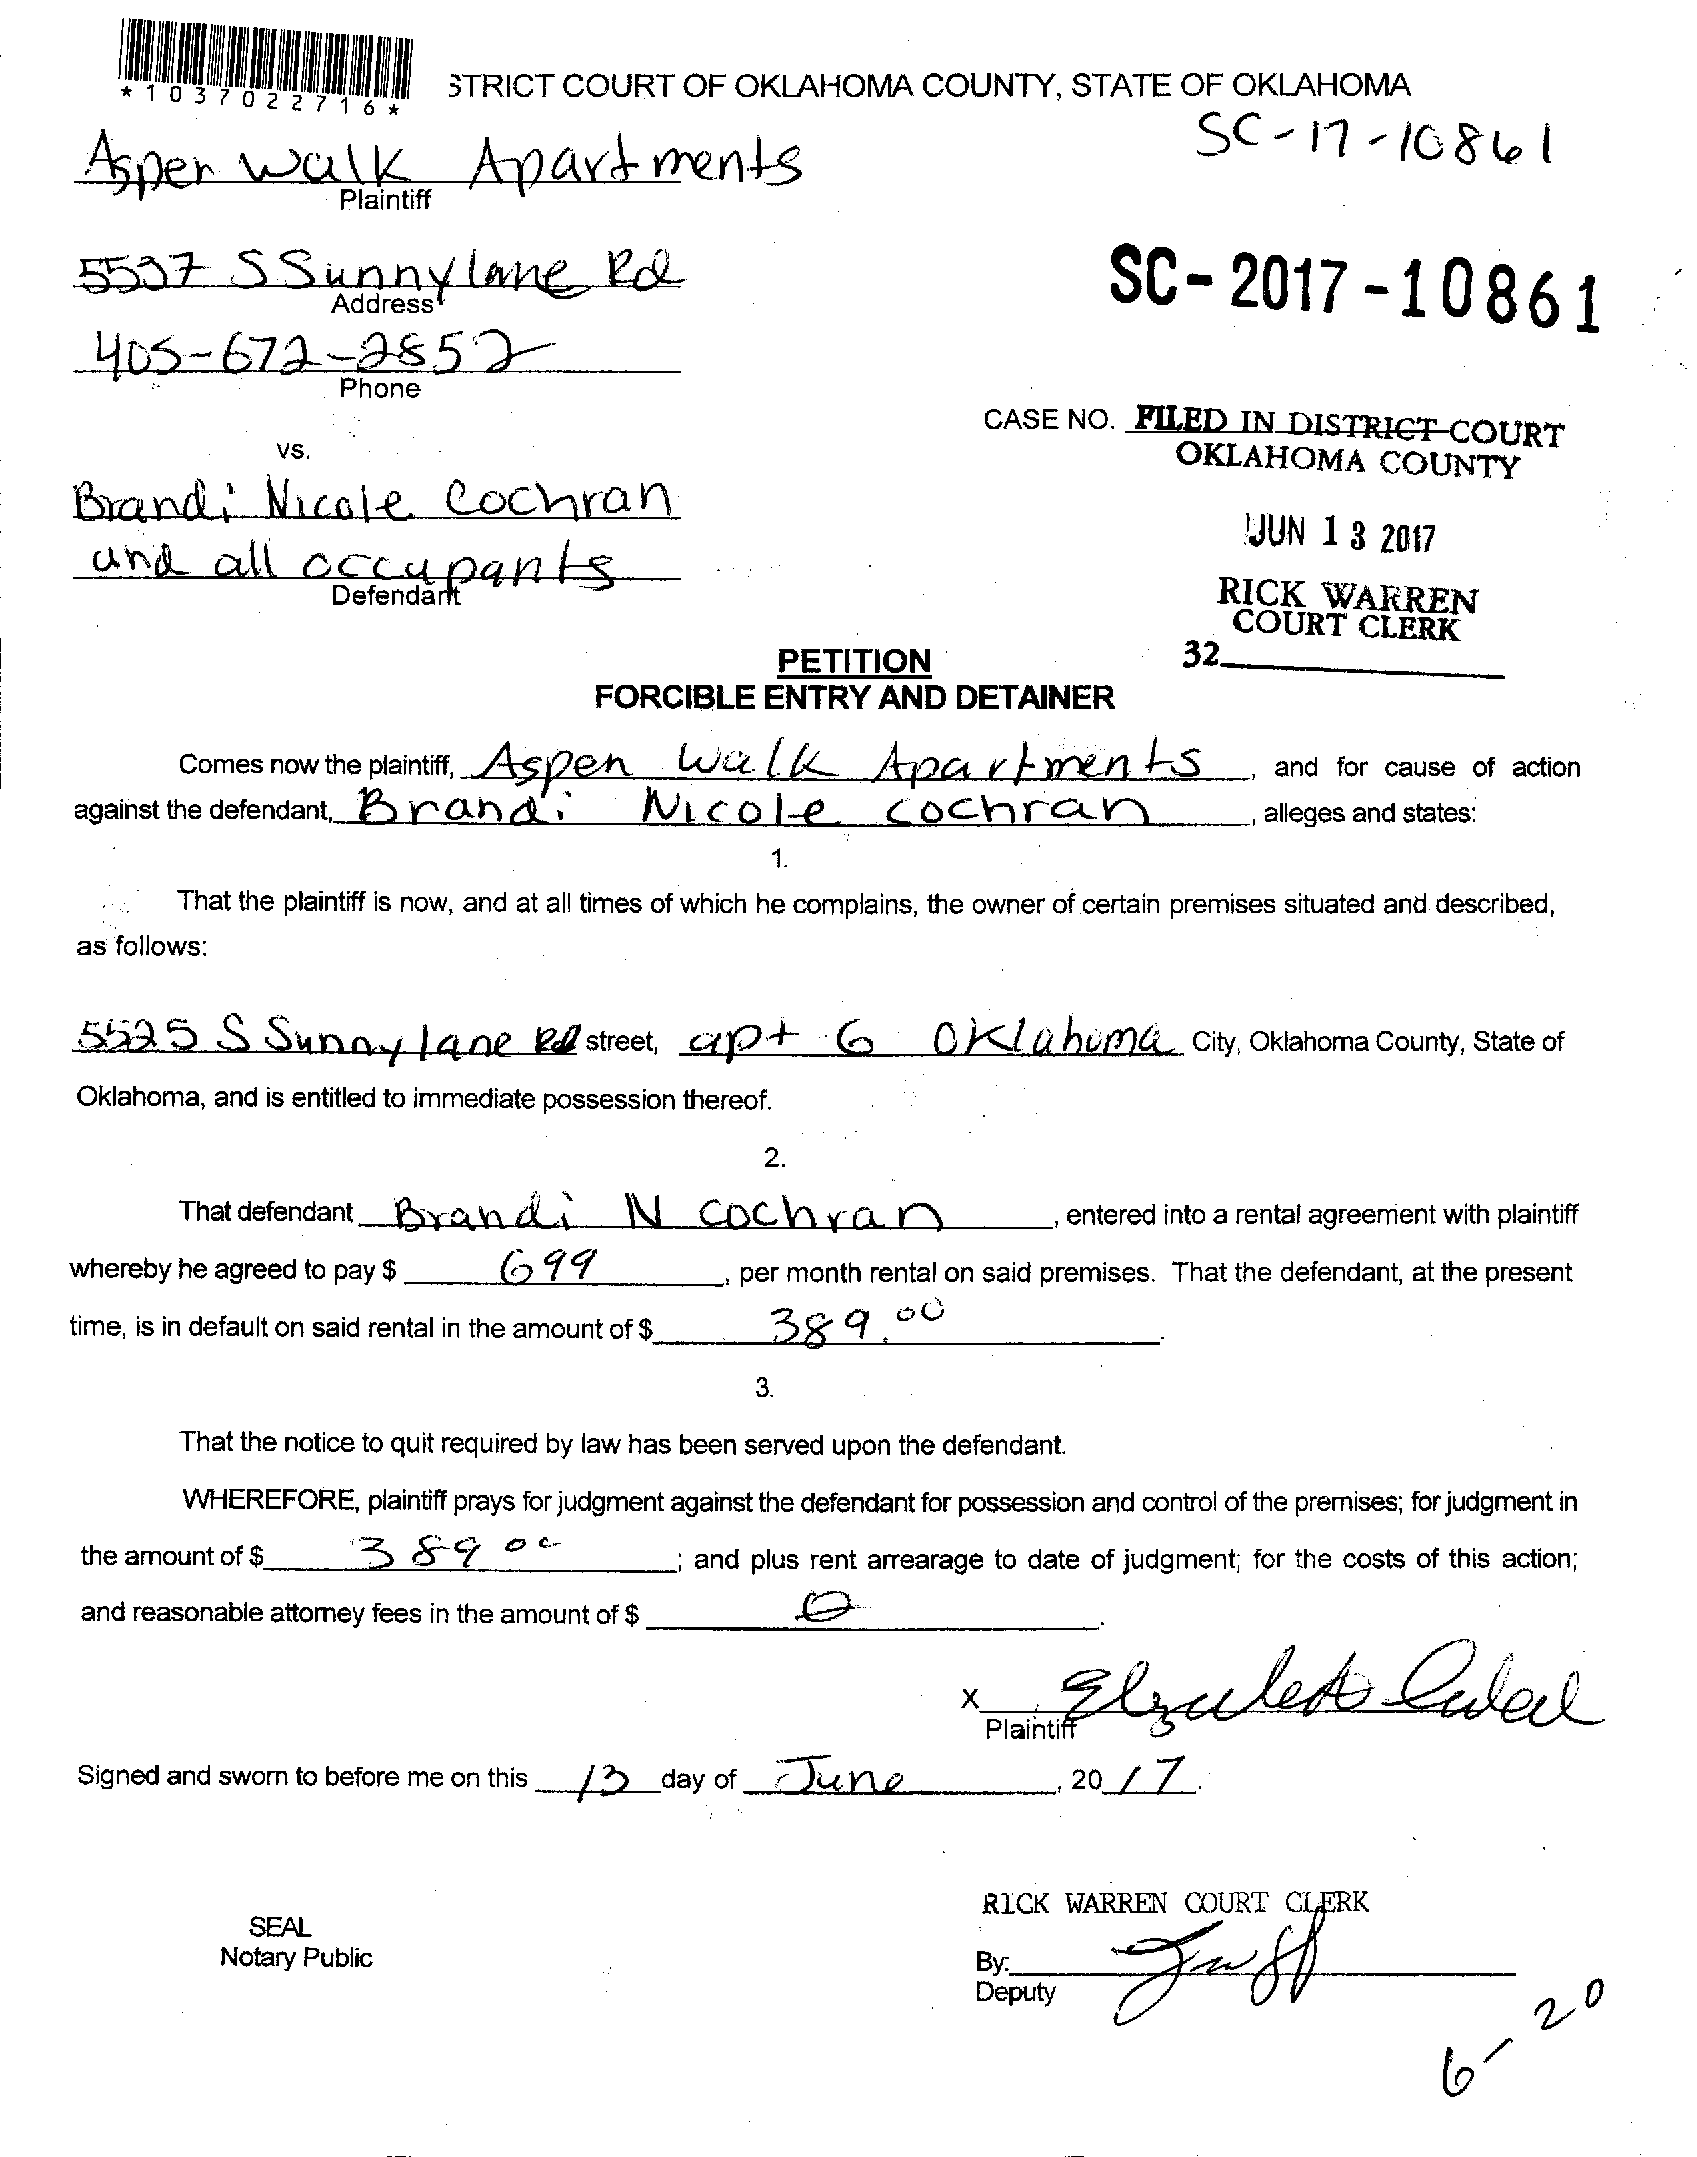 *1037022716*
STRICT COURT OF OKLAHOMA COUNTY, STATE OF OKLAHOMA
SC-17-10861
Aspen Walk Apartments
Plaintiff
5537 S Sunnylane Rd
Address
SC-2017-10861
405-672-2852
Phone
CASE NO. FILED IN DISTRICT COURT
OKLAHOMA COUNTY
vs.
Brandi Nicole Cochran
JUN 13 2017
and all occupants
Defendant
RICK WARREN
COURT CLERK
32
PETITION
FORCIBLE ENTRY AND DETAINER
Comes now the plaintiff, Aspen Walk Apartments, and for cause of action
against the defendant, Brandi Nicole Cochran, alleges and states:
1.
That the plaintiff is now, and at all times of which he complains, the owner of certain premises situated and described,
as follows:
5525 S Sunnylane Rd street, apt G Oklahoma City, Oklahoma County, State of
Oklahoma, and is entitled to immediate possession thereof.
2.
That defendant Brandi N Cochran, entered into a rental agreement with plaintiff
whereby he agreed to pay $ 699, per month rental on said premises. That the defendant, at the present
time, is in default on said rental in the amount of $ 389.00.
3.
That the notice to quit required by law has been served upon the defendant.
WHEREFORE, plaintiff prays for judgment against the defendant for possession and control of the premises; for judgment in
the amount of $ 389 00; and plus rent arrearage to date of judgment; for the costs of this action;
and reasonable attorney fees in the amount of $ 0.
x
Plaintiff
Signed and sworn to before me on this 13 day of June, 2017.
RICK WARREN COURT CLERK
SEAL
Notary Public
By:
Deputy
6-20